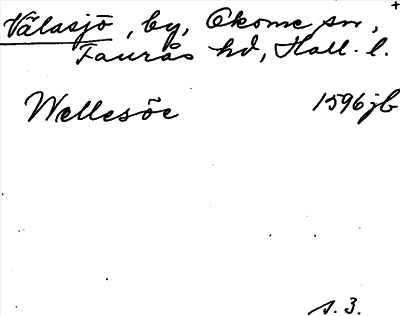 Välasjö, by, Okome sn,
Faurås hd, Hall. l.
Wellesöe 1596 jb
s. 3.